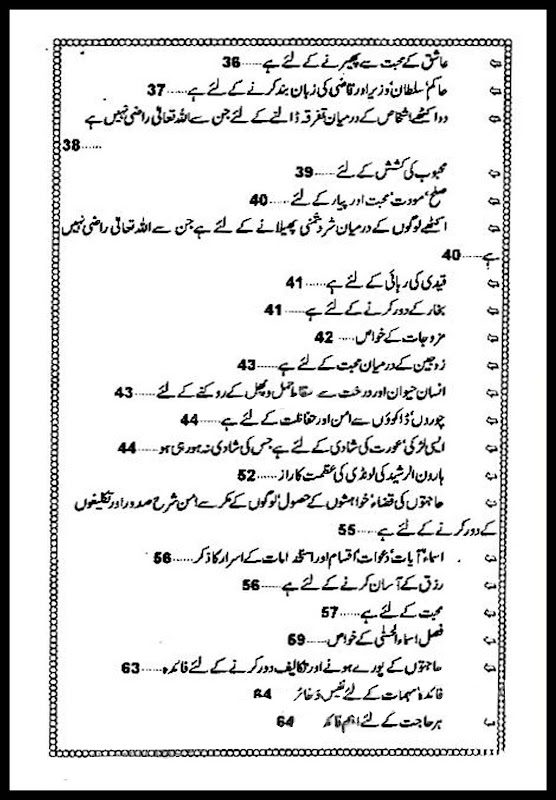 عاشق کے محبت سے پھیرنے کے لئے ہے......36
حاکم' سلطان' وزیر اور قاضی کی زبان بند کرنے کے لئے ہے......37
دو اکٹھے اشخاص کے درمیان تفرقہ ڈالنے کے لئے جن سے اللہ تعالیٰ راضی نہیں ہے
......38
محبوب کی کشش کے لئے ......39
صلح' مودت' محبت اور پیار کے لئے ......40
اکٹھے لوگوں کے درمیان شر دشمنی پھیلانے کے لئے ہے جن سے اللہ تعالیٰ راضی نہیں
ہے......40
قیدی کی رہائی کے لئے ہے......41
بخار کے دور کرنے کے لئے ہے......41
مزوجات کے خواص......42
زوجین کے درمیان محبت کے لئے ہے......43
انسان حیوان اور درخت سے سقاط حمل و پھل کے روکنے کے لئے......43
چوروں' ڈاکوؤں سے امن اور حفاظت کے لئے ہے......44
ایسی لڑکی' عورت کی شادی کے لئے ہے جس کی شادی نہ ہو رہی ہو......44
ہارون الرشید کی لونڈی کی عظمت کا راز......52
حاجتوں کی قضاء' خواہشوں کے حصول' لوگوں کے مکر سے امن شرح صدور اور تکلیفوں
کے دور کرنے کے لئے ہے......55
اسماء' آیات' دعوات' اقسام اور استخدامات کے اسرار کا ذکر......56
رزق کے آسان کرنے کے لئے ہے......56
محبت کے لئے ہے......57
فصل اسماء الحسنٰی کے خواص......59
حاجتوں کے پورے ہونے اور تکالیف دور کرنے کے لئے فائدہ......63
فائدہ' مہمات کے لئے نفیس ذخائر 64
ہر حاجت کے لئے اہم فائدہ 64